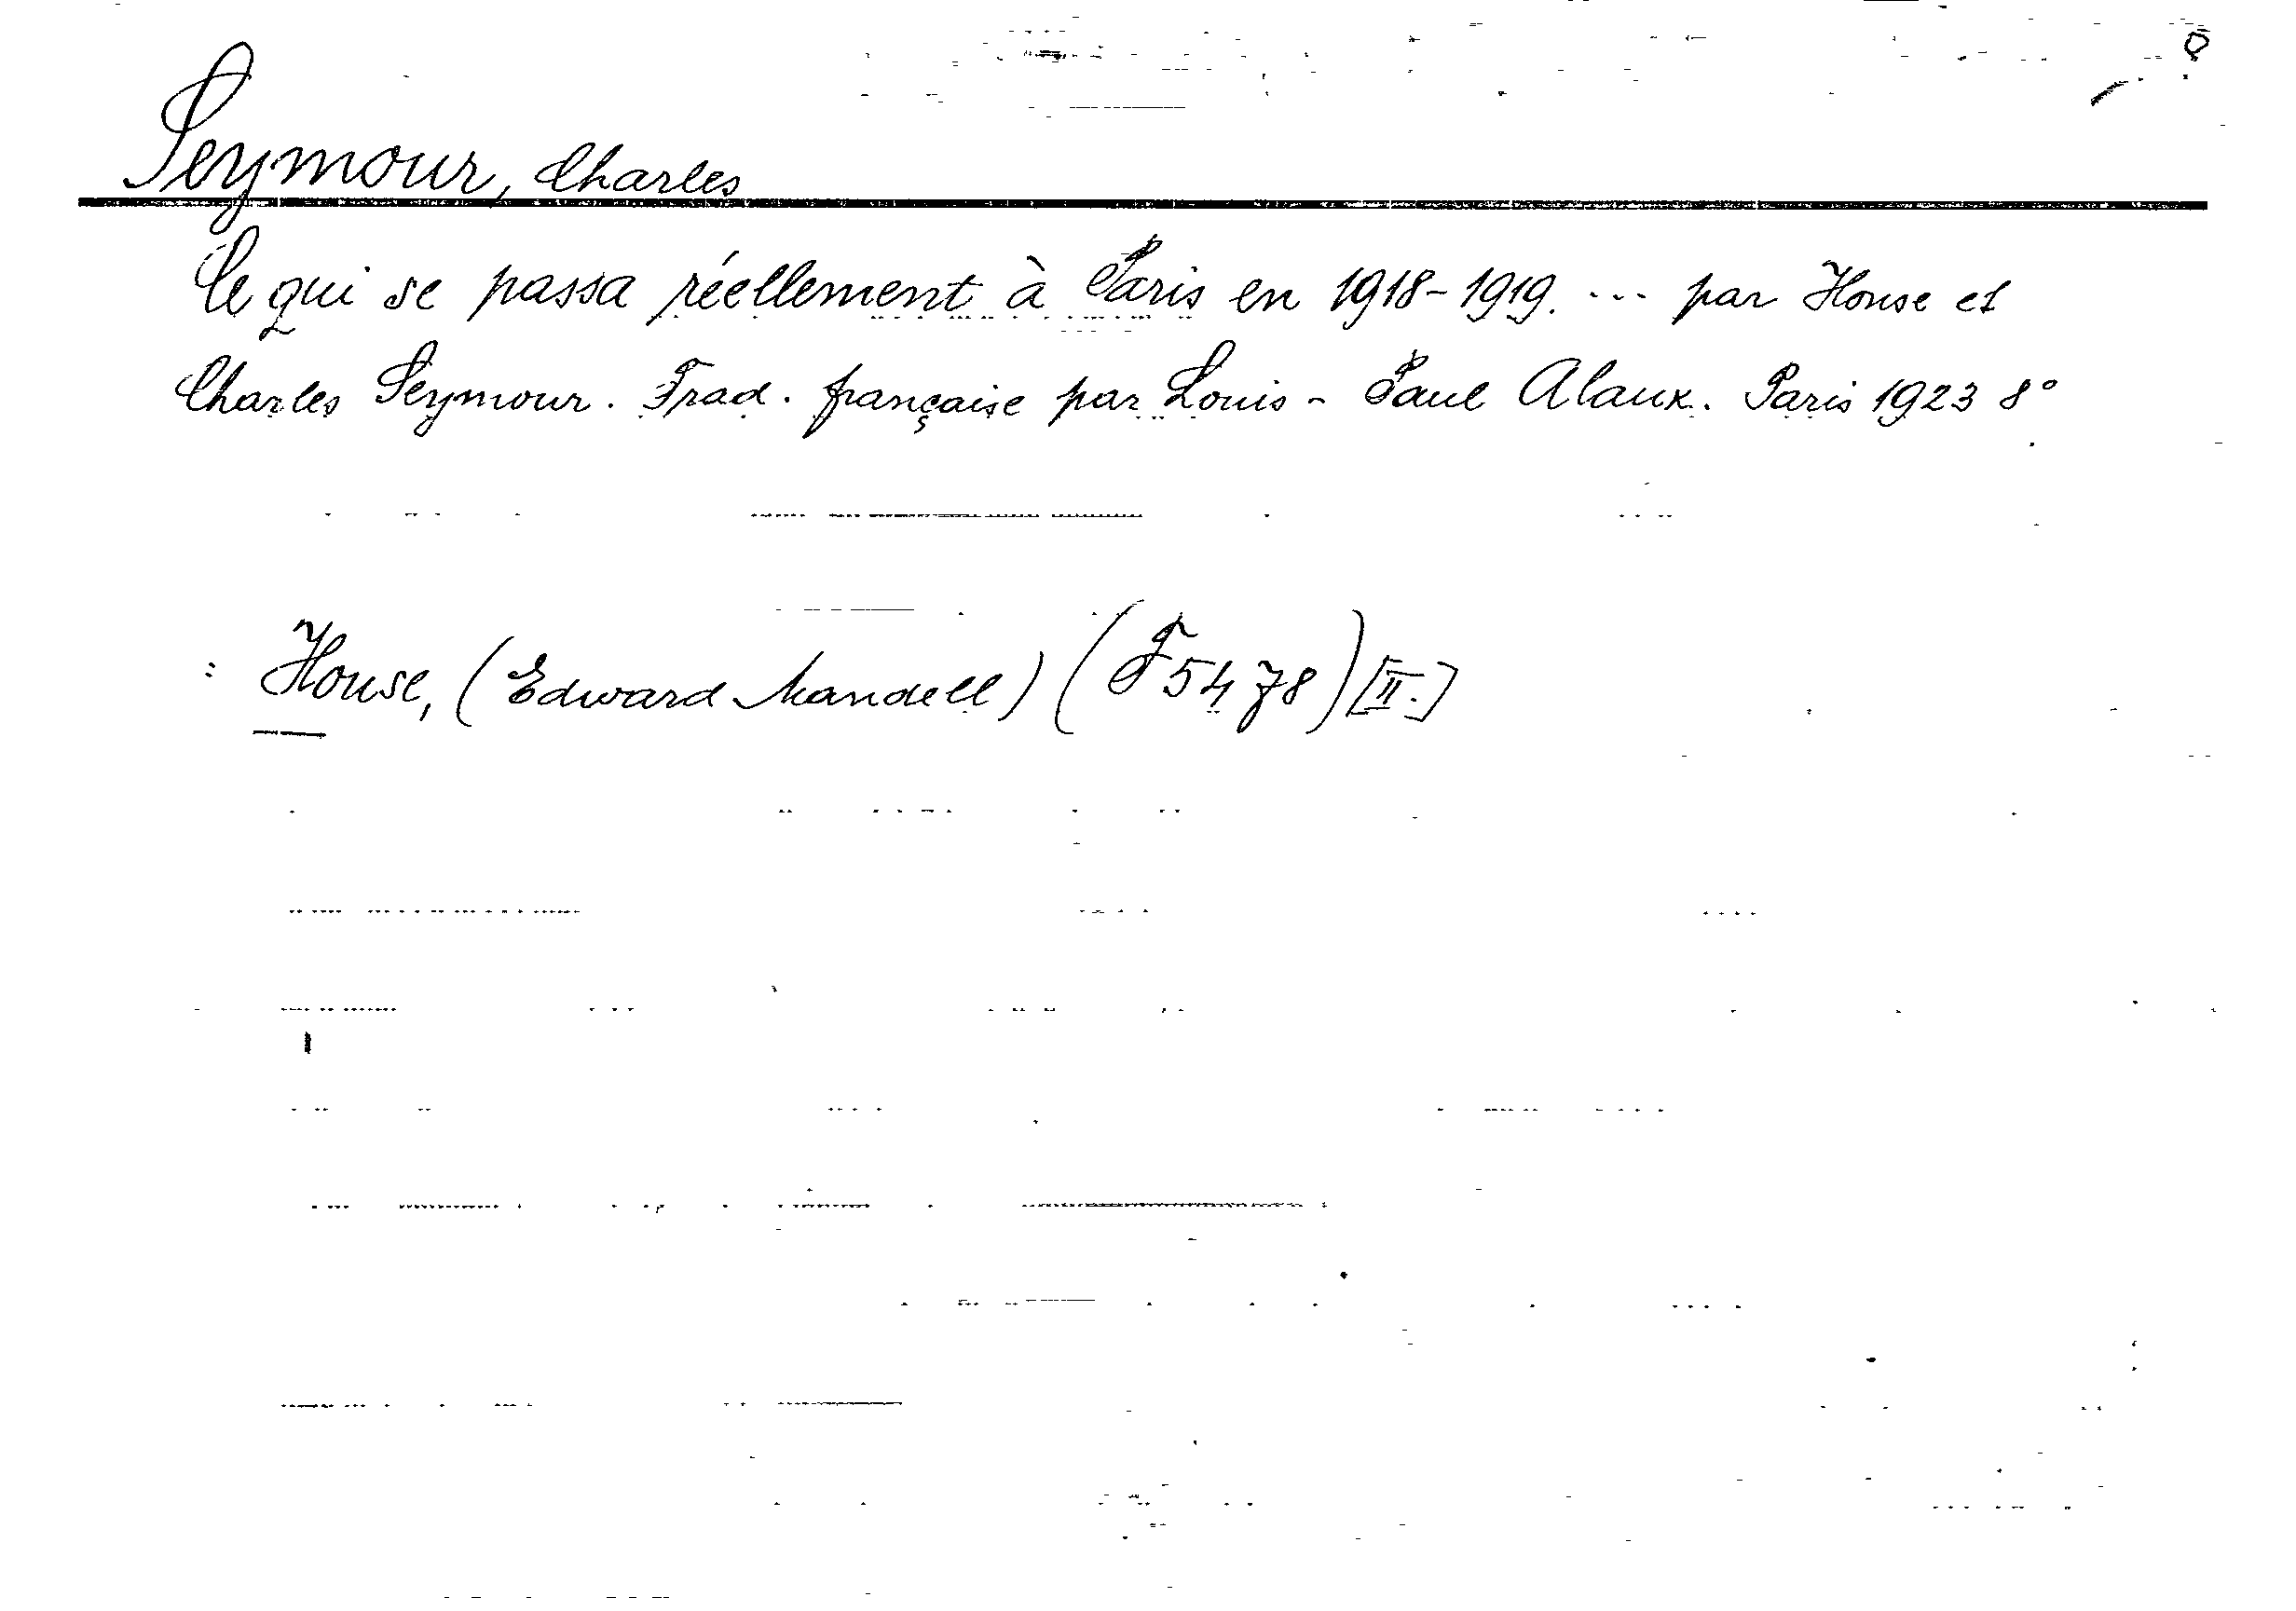 Seymour, Charles
Ce qui se passa réellement à Paris en 1918-1919. ... par House et
Charles Seymour. Trad. française par Louis-Paul Alaux. Paris 1923 8°
: House, (Edward Mandell) (F5478) [II.]